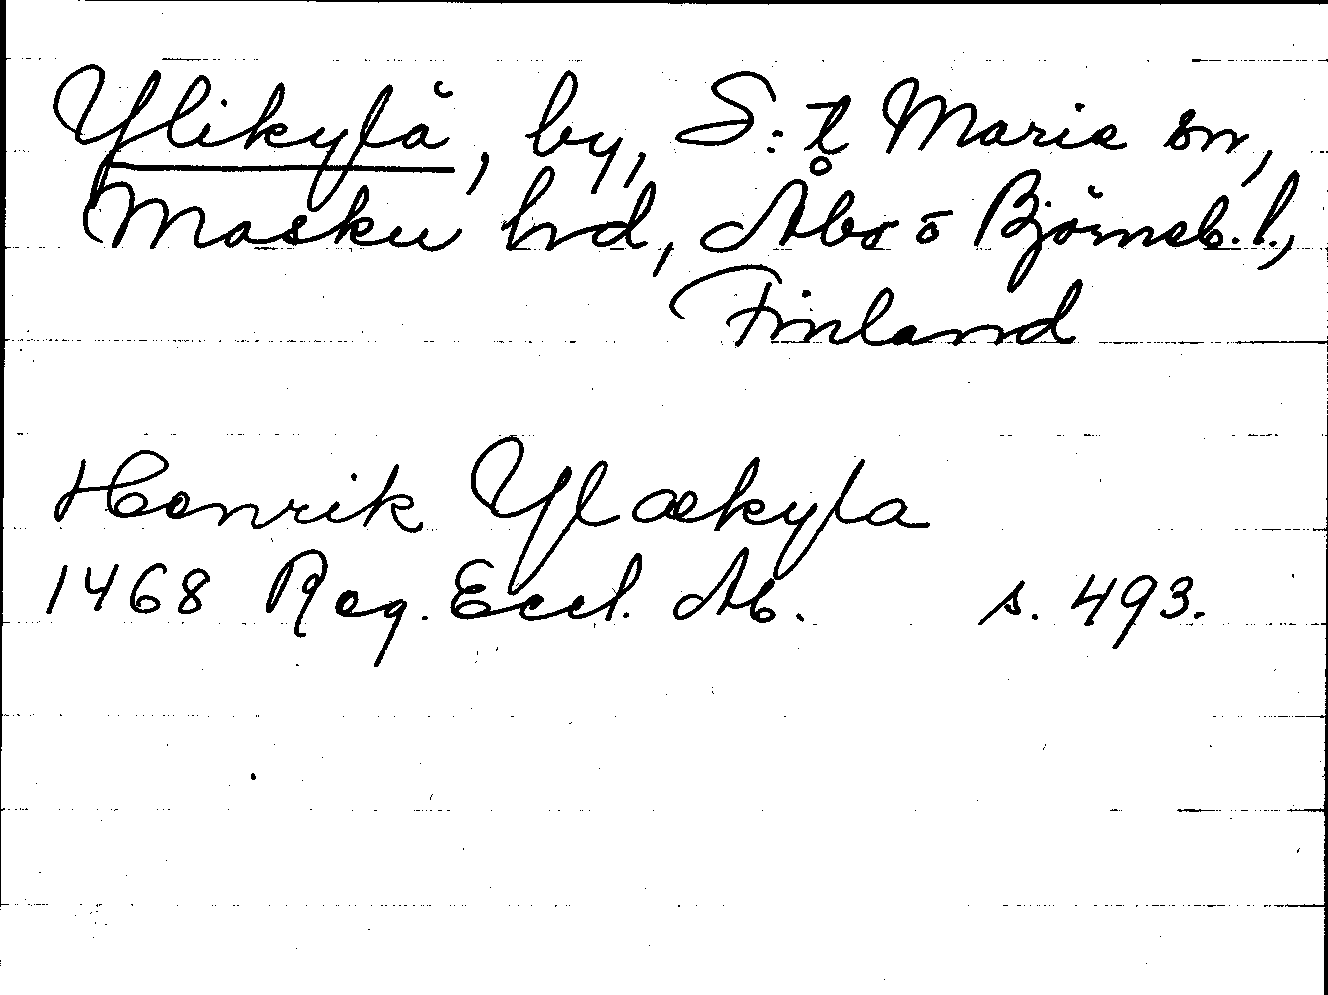 Ylikylä, by, S:t Marie sn,
Masku hrd, Åbo o Björneb. l.,
Finland
Henrik Ylækyla
1468 Reg. Eccl. Ab. s. 493.